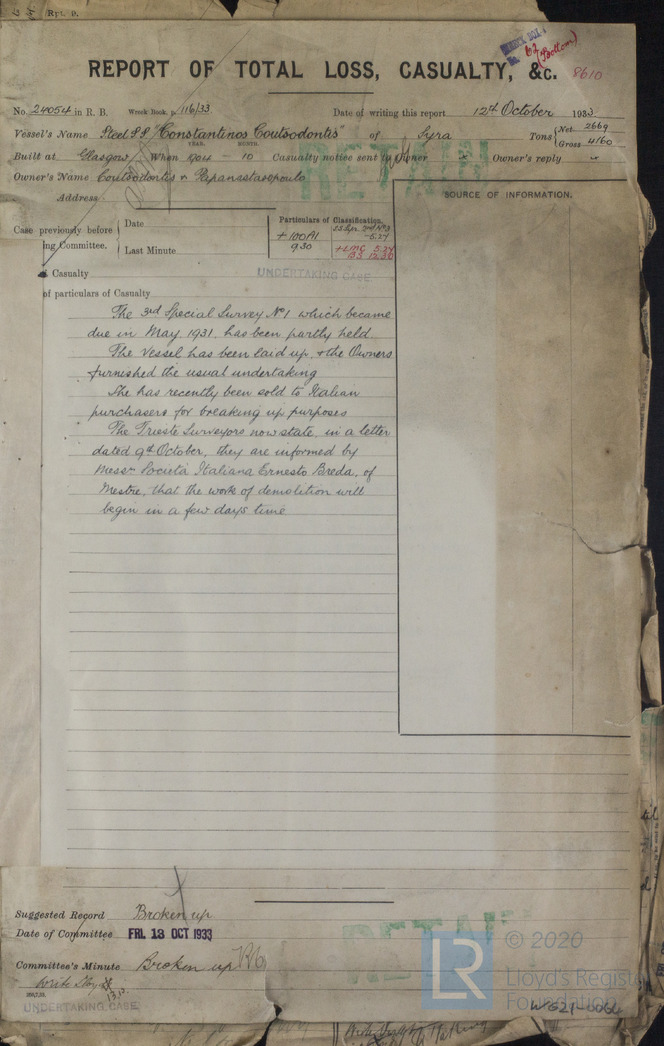 Rpt. 9.
WRECK BOOK
62 (Bottom)
8610
REPORT OF TOTAL LOSS, CASUALTY, &c.
No. 24054 in R. B. Wreck Book, p. 116/33 Date of writing this report 12th October 1933
Vessel's Name Steel SS "Constantinos Coutsodontis" of Syra Tons Net 2669 Gross 4160
YEAR. MONTH.
Built at Glasgow When 1904 - 10 Casualty notice sent to Owner Owner's reply
Owner's Name Coutsodontis & Papanastasopoulo
RETAIN
Address
SOURCE OF INFORMATION.
Case previously before
ing Committee.
Date
Last Minute
Particulars of Classification.
+100A1
9.30
+LMC 5.27
BS 12.30
Casualty
UNDERTAKING CASE.
of particulars of Casualty
The 3rd Special Survey No 1 which became
due in May 1931, has been partly held.
The Vessel has been laid up, & the Owners
furnished the usual undertaking
She has recently been sold to Italian
purchasers for breaking up purposes
The Trieste Surveyors now state, in a letter
dated 9th October, they are informed by
Messrs Società Italiana Ernesto Breda, of
Mestre, that the work of demolition will
begin in a few days time
Suggested Record Broken up
Date of Committee FRI. 13 OCT 1933
RETAIN
Committee's Minute Broken up
Write
13.10.
UNDERTAKING CASE
LR
© 2020
Lloyd's Register
Foundation
W621-0064